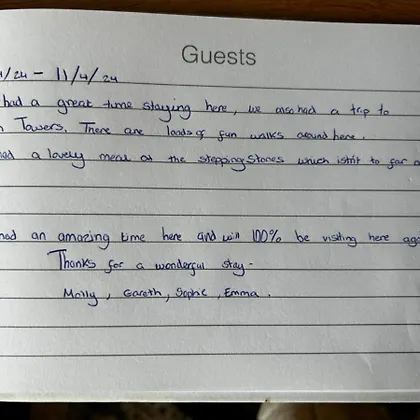 Guests
/24 - 11/4/24
had a great time staying here, we also had a trip to
Towers. There are loads of fun walks around here.
had a lovely meal at the stepping Stones which isn't to far
had an amazing time here and will 100% be visiting here aga
Thanks for a wonderful stay.
Molly, Gareth, Sophie, Emma.